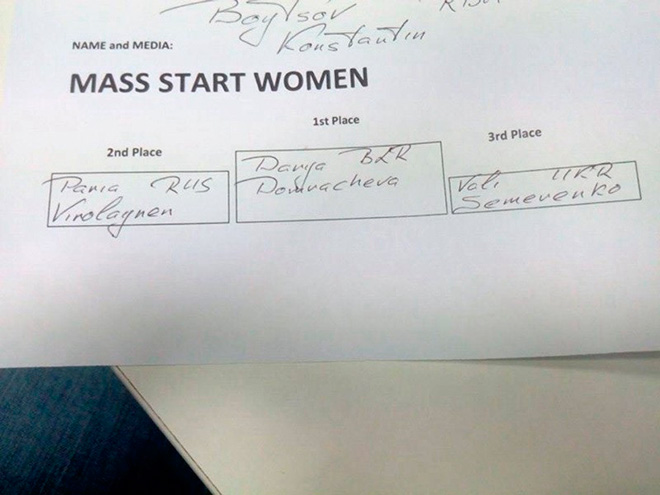 Boytsov
Konstantin
NAME and MEDIA:
MASS START WOMEN
1st Place
2nd Place
3rd Place
Darya BLR
Domracheva
Daria RUS
Virolaynen
Vali UKR
Semerenko